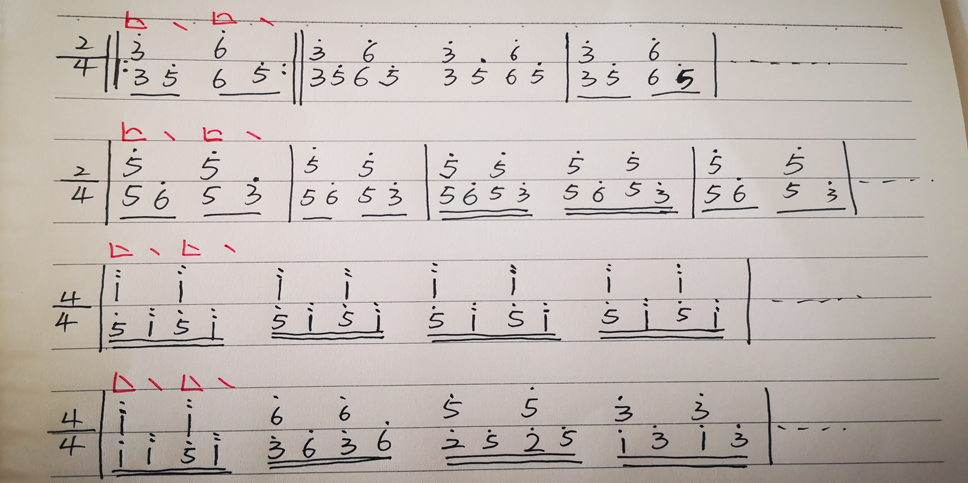 2 3 6 3 6 3 6 3 6
4 3 5 6 5 3 5 6 5 3 5 6 5 3 5 6 5
2 5 5 5 5 5 5 5 5 5 5
4 5 6 5 3 5 6 5 3 5 6 5 3 5 6 5 3 5 6 5 3
4 1 1 1 1 1 1 1 1
4 5 1 5 1 5 1 5 1 5 1 5 1 5 1 5 1
4 1 1 6 6 5 5 3 3
4 1 1 5 1 3 6 3 6 2 5 2 5 1 3 1 3